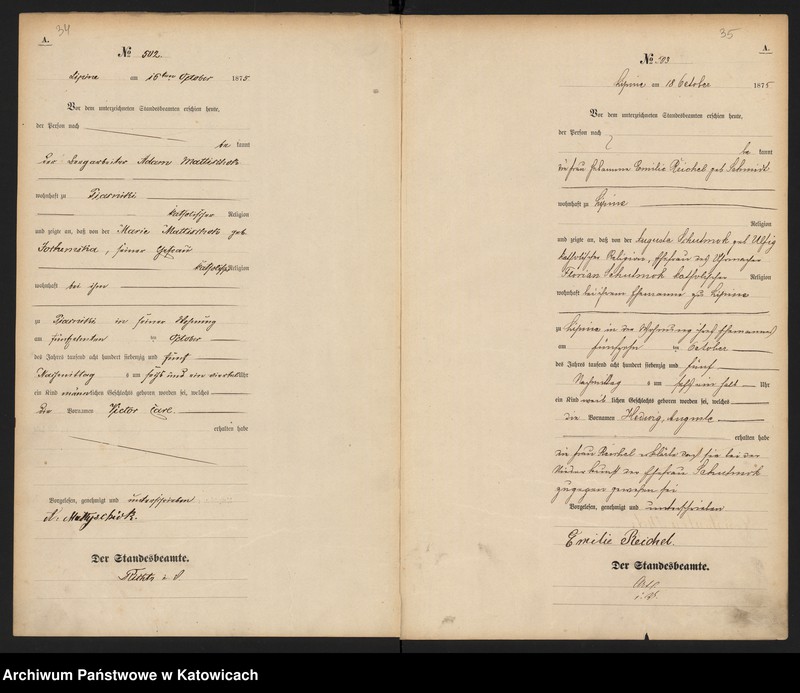 34
A.
№ 502.
Lipine am 16ten October 1875.
Vor dem unterzeichneten Standesbeamten erschien heute,
der Person nach
be kannt
der Bergarbeiter Adam
wohnhaft zu Piasniki
katholischer Religion
und zeigte an, daß von der Marie geb.
, seiner Ehefrau
katholischer Religion
wohnhaft bei ihm
zu Piasniki in seiner Wohnung
am fünfzehnten October
des Jahres tausend acht hundert siebenzig und fünf
Nachmittag s um sechs und ein viertel Uhr
ein Kind männlichen Geschlechts geboren worden sei, welches
die Vornamen Victor Carl.
erhalten habe
Vorgelesen, genehmigt und unterschrieben
A. Mattyschick.
Der Standesbeamte.
35
A.
№ 503
Lipine am 18 October 1875
Vor dem unterzeichneten Standesbeamten erschien heute,
der Person nach
be kannt
die Frau Hebamme Emilie Reichel geb. Schmidt
wohnhaft zu Lipine
Religion
und zeigte an, daß von der Auguste Schutmok geb.
katholischer Religion, Ehefrau des
Florian Schutmok katholischer Religion
wohnhaft bei ihrem Ehemanne zu Lipine
zu Lipine in der Wohnung ihres Ehemannes
am fünfzehn ten October
des Jahres tausend acht hundert siebenzig und fünf
Nachmittag s um halb Uhr
ein Kind weib lichen Geschlechts geboren worden sei, welches
die Vornamen Hedwig, Auguste
erhalten habe
die Frau Reichel erklärte daß sie bei der
Niederkunft der Ehefrau Schutmok
zugegen gewesen sei
Vorgelesen, genehmigt und unterschrieben
Emilie Reichel.
Der Standesbeamte.
Archiwum Państwowe w Katowicach